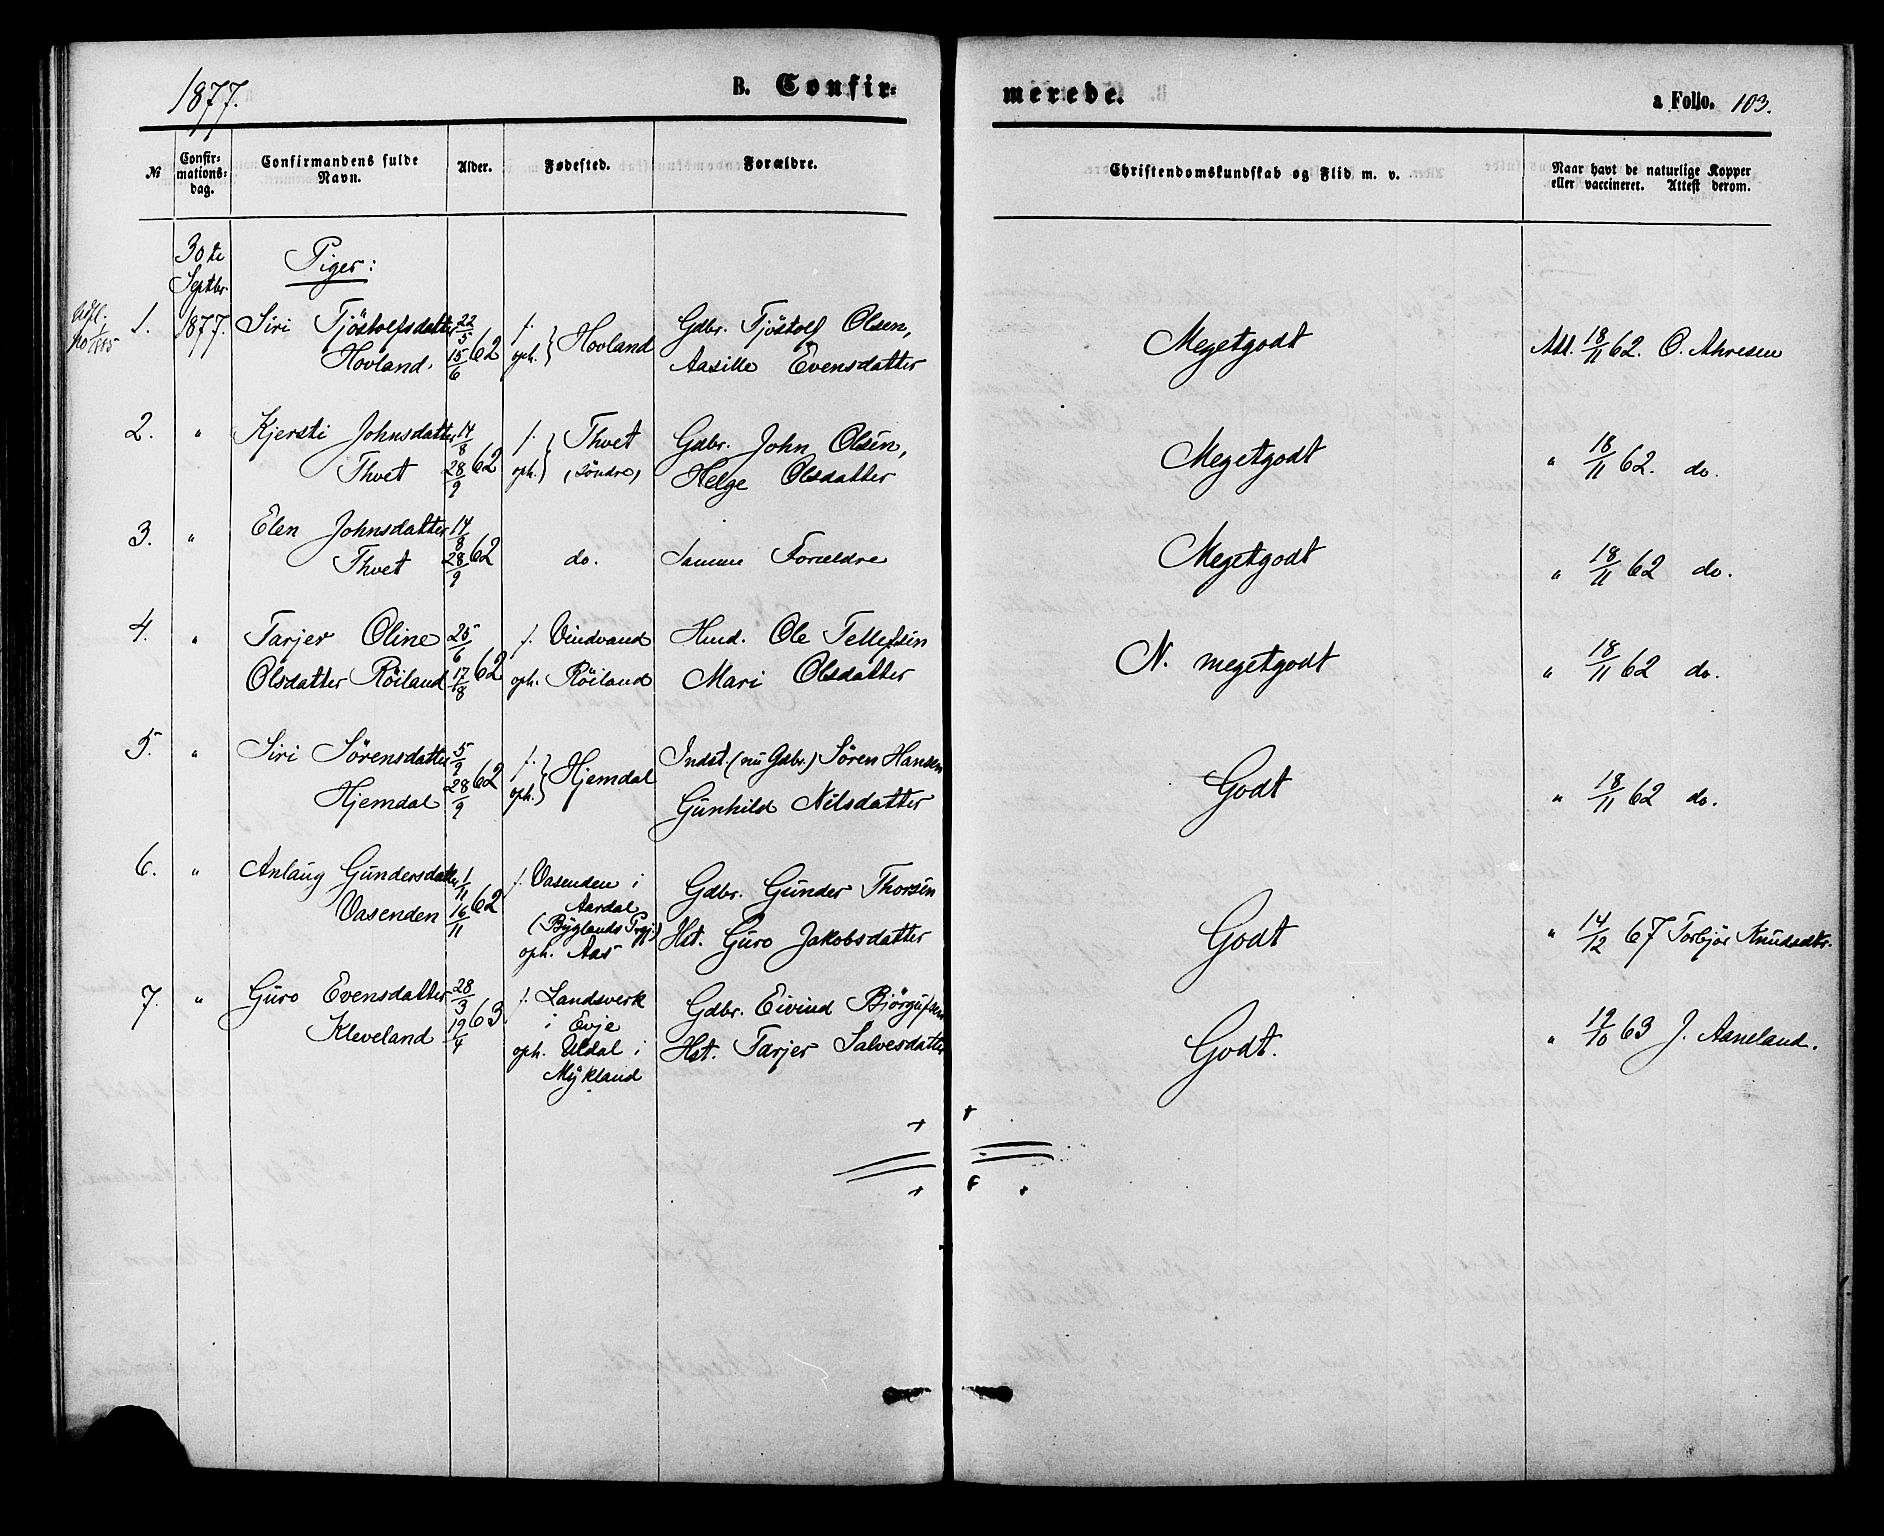 1877.
B. Confir=
merede.
a Folio. 103.
№
Confir=
mations=
dag.
Confirmandens fulde
Navn.
Alder.
Fødested.
Forældre.
Christendomskundskab og Flid m. v.
Naar havt de naturlige Kopper
eller vaccineret. Attest derom.
30te
Septbr.
1877.
Piger:
1. Siri Tjöstolfsdatter 22/5 f. Gdbr. Tjöstolf Olsen,
Hovland. 15/6 62 oph. } Hovland Aasille Evensdatter
Megetgodt
Att. 18/11 62. O. Ahresen
2. " Kjersti Johnsdatter 14/8 f. Thvet Gdbr. John Olsen,
Thvet 28/9 62 oph. } (söndre) Helge Olsdatter
Megetgodt
" 18/11 62. do.
3. " Elen Johnsdatter 14/8
Thvet 28/9 62 do. Samme Forældre
Megetgodt
" 18/11 62 do.
4. " Tarjer Oline 25/6 f. Vindvand Huusd. Ole Tellefsen
Olsdatter Röiland 17/8 62 oph. Röiland Mari Olsdatter
N. megetgodt
" 18/11 62 do.
5. " Siri Sörensdatter 5/9 f. Indst. (nu Gdbr.) Sören Hansen
Hjemdal 28/9 62 oph. } Hjemdal Gunhild Nilsdatter
Godt
" 18/11 62 do.
6. " Anlaug Gundersdatter 1/11 f. Vasenden i Gdbr. Gunder Thorsen
Vasenden 16/11 62 Aardal
(Byglands Prgj.) Hst. Guro Jakobsdatter
oph. Aas
Godt
" 14/12 67 Torbjör Knudsdtr.
7. " Guro Evensdatter 28/3 f. Landsverk Gdbr. Eivind Björgufsen
Kleveland 19/4 63. i Evje
oph. Uldal i Hst. Tarjer Salvesdatter
Mykland
Godt.
" 19/10 63 J. Aaneland.